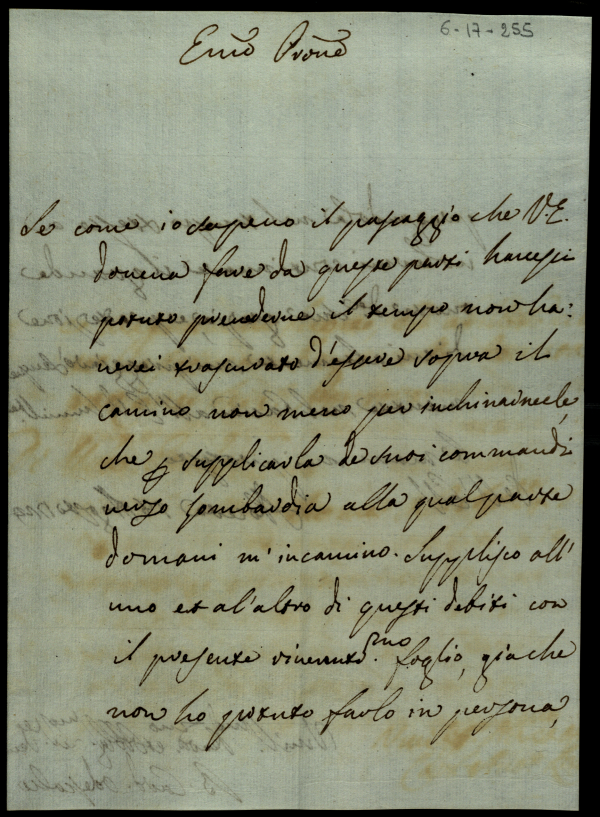 6-17-255
Emõ Prone
Se come io sapeuo il passaggio che V.E.
doueua fare da queste parti hauessi
potuto preuederne il tempo non ha:
uerei trascurato d'essere sopra il
camino non meno per inchinarmele,
che p supplicarla de suoi commandi
uerso Lombardia alla qual parte
domani m'incamino. Supplisco all'
uno et al'altro di questi debiti con
il presente riuerentmo. foglio, gia che
non ho potuto farlo in persona,